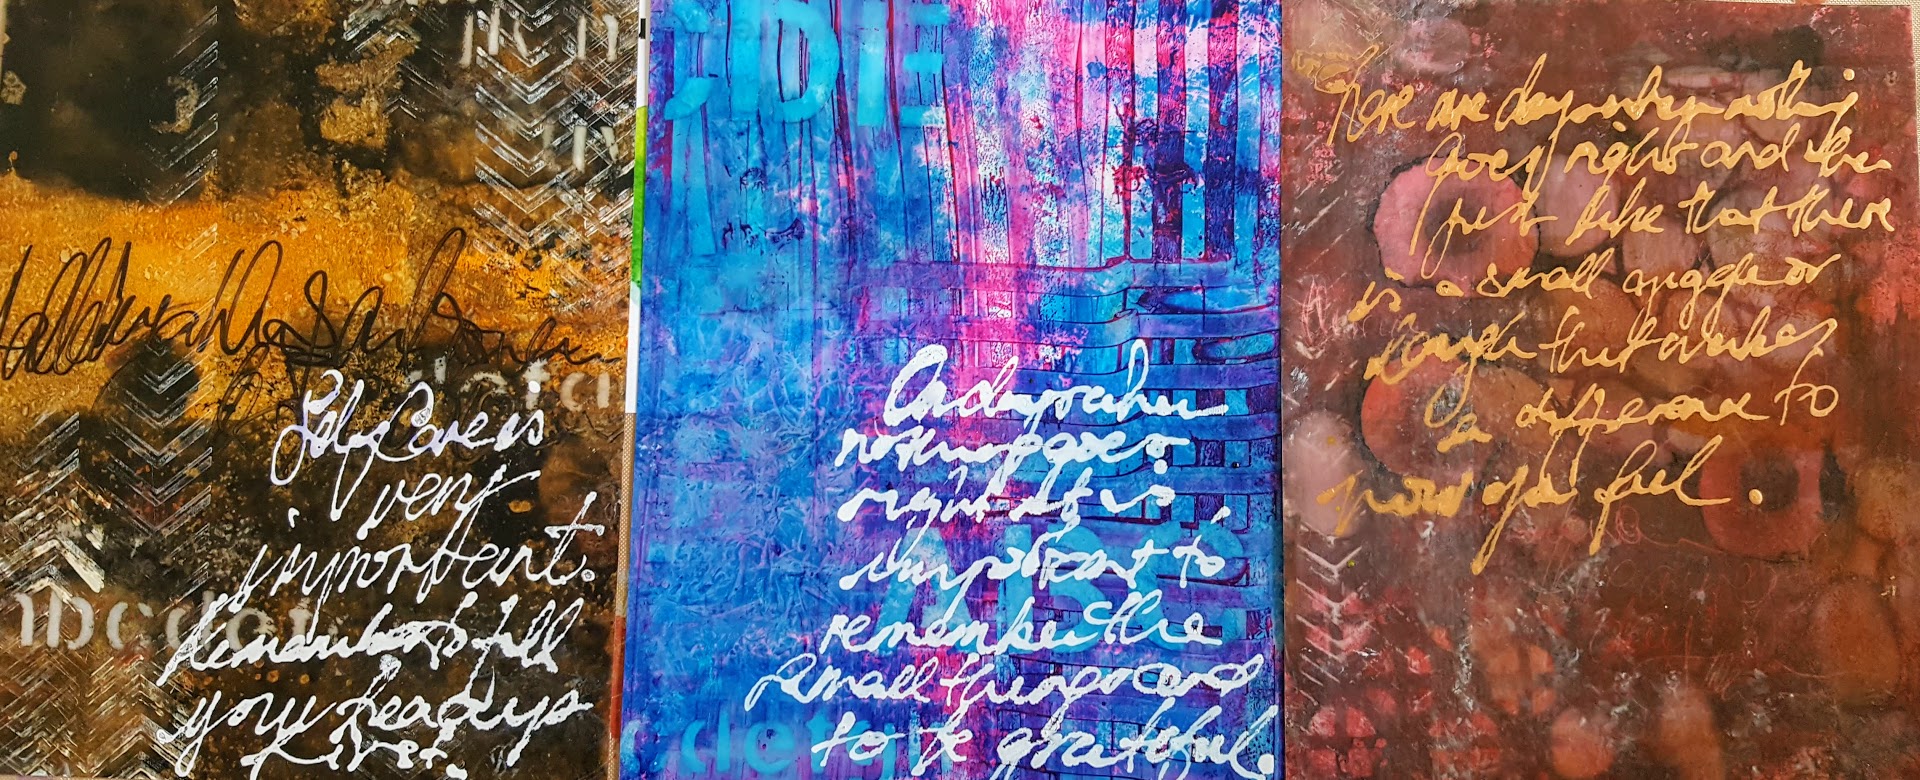 CIDIE
Self Care is
very
important.
Remember to fill
your heart up
first.
abcdef
On days when
nothing goes
right it is
important to
remember the
small things and
to be grateful.
ABC
c defg
There are days when nothing
goes right and then
just like that there
is a small giggle or
laugh that makes
a difference to
how you feel.